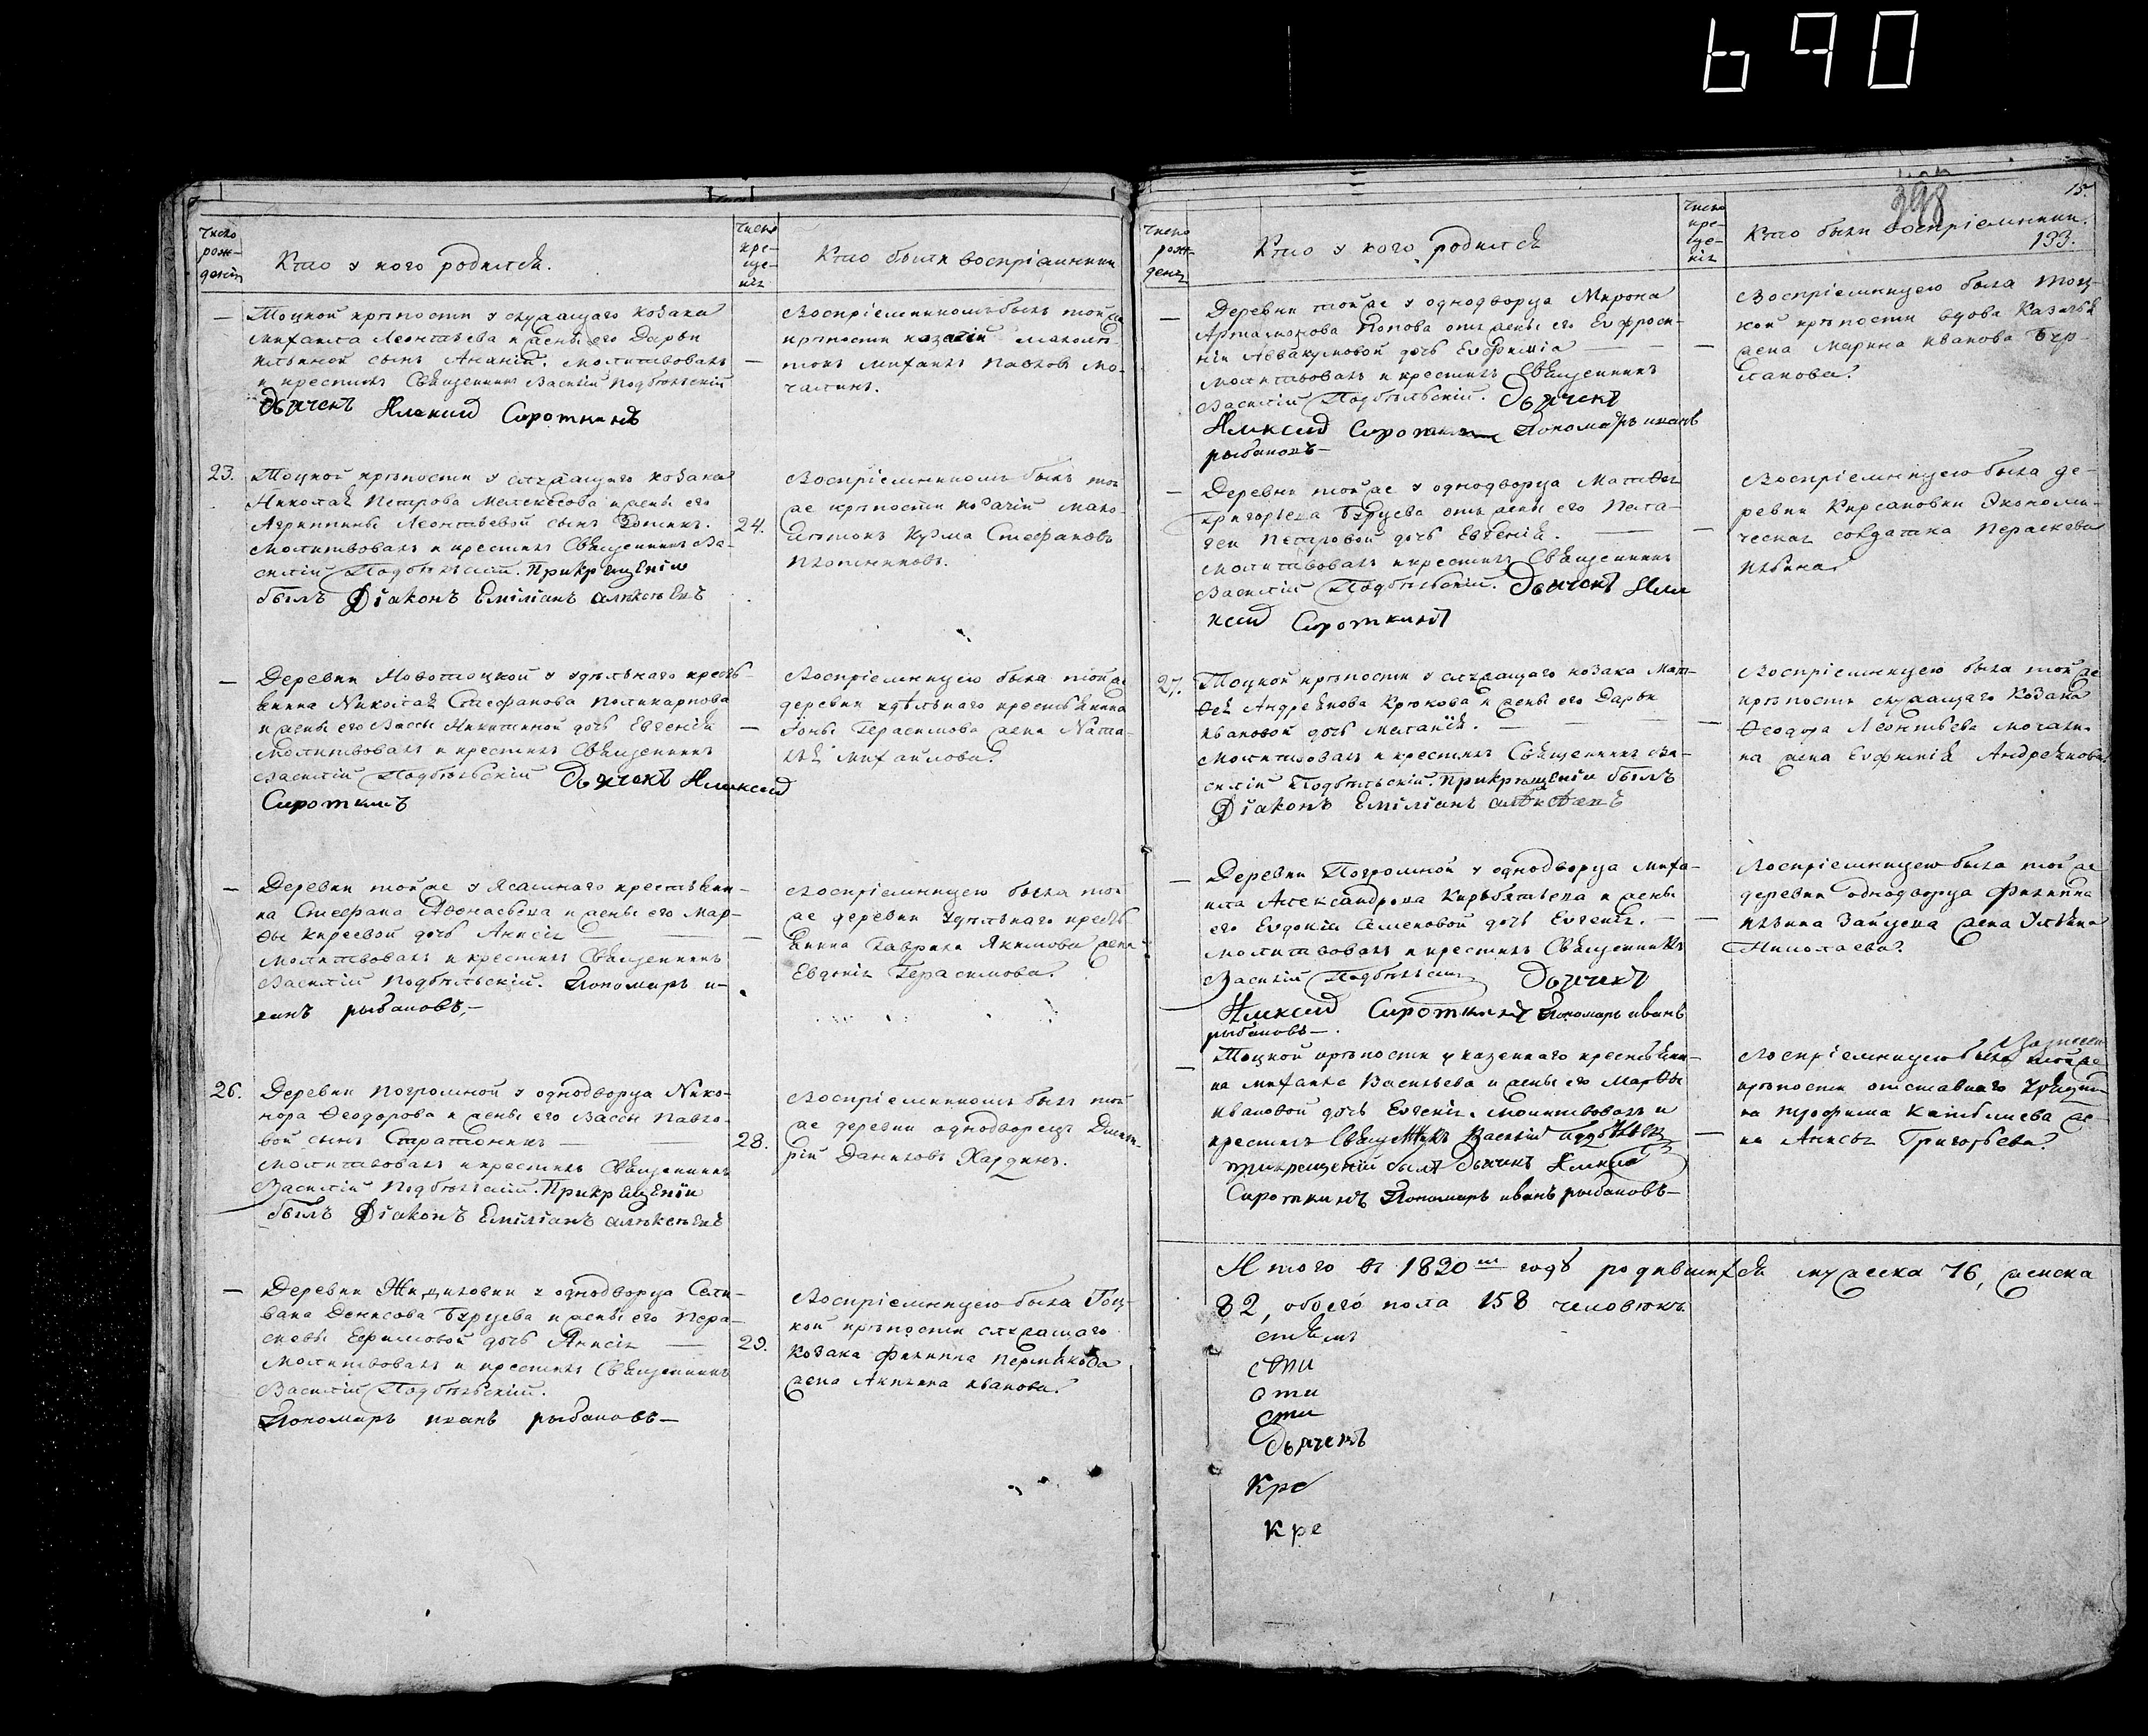 690
Число рож-дения
Кто у кого родился.
Число кре-ще-ния
Кто были восприемники
— Тоцкой крѣпости у служащаго козака
Михаила Леонтьева и жены его Дарьи
Ильиной сынъ Ананiй. молитвовалъ
и крестилъ Священникъ Василiй Подбѣльскiй
Дьячекъ Алексей Сироткинъ
—
Воспрiемникомъ былъ той же
крѣпости козачiй малолѣ-
токъ Михаилъ Павловъ Мо-
чалинъ.
23. Тоцкой крѣпости у служащаго козака
Николая Петрова Мелекесова и жены его
Агриппины Леонтьевой сынъ Зотикъ.
молитвовалъ и крестилъ Священникъ Ва-
силiй Подбѣльскiй. При крещенiи
былъ Дiаконъ Емилiанъ алѣксѣевъ
24.
Воспрiемникомъ былъ той
же крѣпости козачiй мало-
лѣтокъ Кузма Стефановъ
Плотниковъ.
— Деревни Новотоцкой у удѣльнаго кресть-
янина Николая Стефанова Поликарпова
и жены его Вассы Никитиной дочь Евгенiя
молитвовалъ и крестилъ Священникъ
Василiй Подбѣльскiй Дьячекъ Алексей
Сироткинъ
—
Воспрiемницею была той же
деревни удѣльнаго крестьянина
Iоны Герасимова жена Ната-
лья Михайлова.
— Деревни той же у Ясашнаго крестьяни-
на Стефана Афонасьева и жены его Мар-
ѳы Киреевой дочь Анисiя
молитвовалъ и крестилъ Священникъ
Василiй Подбѣльскiй. Пономарь и-
ванъ рыбаковъ,—
—
Воспрiемницею была той
же деревни удѣльнаго кресть-
янина Гаврила Якимова жена
Евдокiя Герасимова.
26. Деревни Погромной у однодворца Нико-
нора Ѳеодорова и жены его Вассы Павло-
вой сынъ Стратоникъ —
молитвовалъ и крестилъ Священникъ
Василiй Подбѣльскiй. При крещенiи
былъ Дiаконъ Емилiанъ алѣксѣевъ
28.
Воспрiемникомъ былъ той
же деревни однодворецъ Дмит-
рiй Даниловъ Хардинъ.
— Деревни Жидиловки у однодворца Сели-
вана Денисова Бурцева и жены его Пера-
скевы Ефимовой дочь Анисiя —
молитвовалъ и крестилъ Священникъ
Василiй Подбѣльскiй.
Пономарь иванъ рыбаковъ—
29.
Воспрiемницею была Тоц-
кой крѣпости служащаго
козака Филиппа Пермякова
жена Акилина Иванова.
398
15.
Число рож-денiя
Кто у кого родился
Число кре-ще-нiя
Кто были воспрiемники.
193.
— Деревни той же у однодворца Мирона
Артамонова Попова отъ жены его Евфроси-
нiи Аввакумовой дочь Евфимiа —
молитвовалъ и крестилъ Священникъ
Василiй Подбѣльскiй. Дьячекъ
Алексей Сироткинъ Пономарь иванъ
рыбаковъ—
—
Воспрiемницею была Тоц-
кой крѣпости вдова Казачья
жена Марина Иванова Бур-
лакова.
— Деревни той же у однодворца Матѳея
Григорьева Бурцева отъ жены его Пела-
геи Петровой дочь Евгенiя.
молитвовалъ и крестилъ Священникъ
Василiй Подбѣльскiй. Дьячекъ Але
ксей Сироткинъ
—
Воспрiемницею была де-
ревни Кирсановки Экономи-
ческая солдатка Пераскева
Ильина
27. Тоцкой крѣпости у служащаго козака Мат-
ѳея Андреянова Крюкова и жены его Дарьи
Ивановой дочь Меланiя. —
молитвовалъ и крестилъ Священникъ Ва-
силiй Подбѣльскiй. При крѣщенiи былъ
Дiаконъ Емилiанъ алѣксѣевъ
—
Воспрiемницею была той же
крѣпости служащаго козака
Ѳеодора Леонтьева Мочали-
на жена Евфимiя Андреянова.
— Деревни Погромной у однодворца Миха-
ила Александрова Кирѣятьева и жены
его Евдокiи Семеновой дочь Евгенiя. —
молитвовалъ и крестилъ Священникъ
Василiй Подбѣльскiй Дьячекъ
Алексей Сироткинъ Пономарь иванъ
рыбаковъ—.
—
Воспрiемницею была той же
деревни однодворца Филиппа
Ильина Зайцева жена Ульяна
Николаева.
— Тоцкой крѣпости у казеннаго крестьяни-
на Михаила Васильева и жены его Марѳы
Ивановой дочь Евгенiя. молитвовалъ и
крестилъ Священникъ Василiй Подбѣльскiй
при крещенiй былъ Дьячекъ Алексей
Сироткинъ Пономарь иванъ рыбаковъ—
—
Воспрiемницею была той же
крѣпости отставнаго
Трофима жe-
на Анисья Григорьева.
Итого въ 1820м году родившихся мужеска 76, женска
82, обоего пола 158 человѣкъ.
Дьячекъ
Кре
Кре